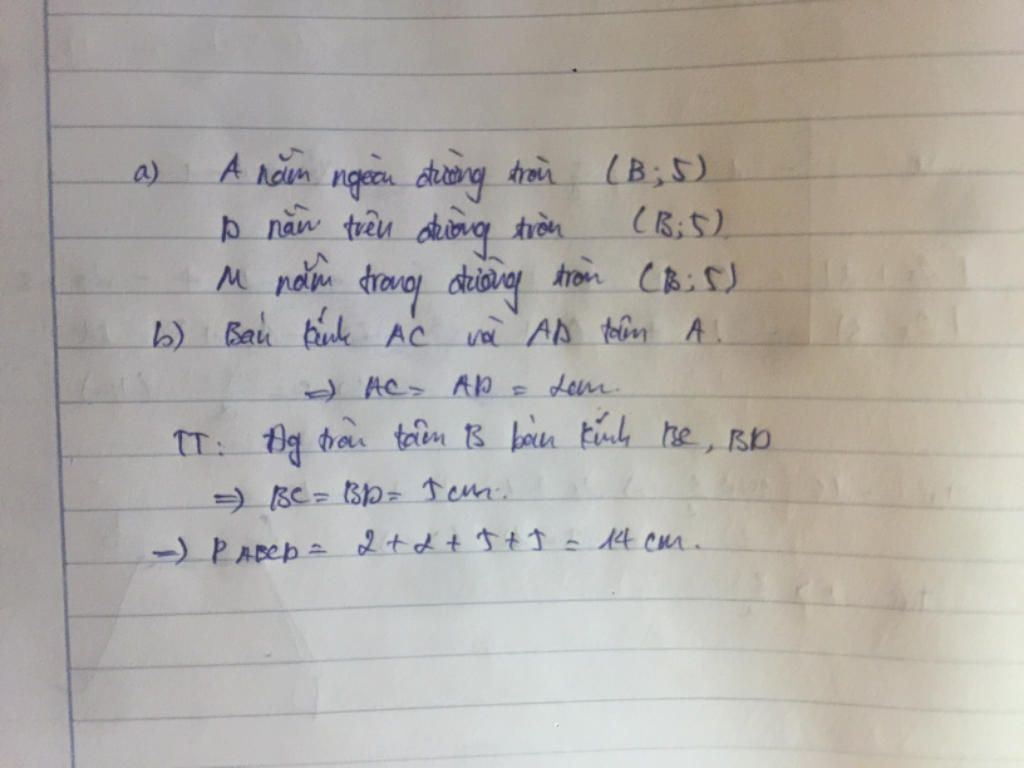 a) A nằm ngoài đường tròn (B;5)
D nằm trên đường tròn (B;5)
M nằm trong đường tròn (B;5)
b) Bán kính AC và AD tâm A.
=> AC = AD = 2cm.
TT: Đg tròn tâm B bán kính BC, BD
=> BC = BD = 5cm.
=> P ABCD = 2 + 2 + 5 + 5 = 14 cm.